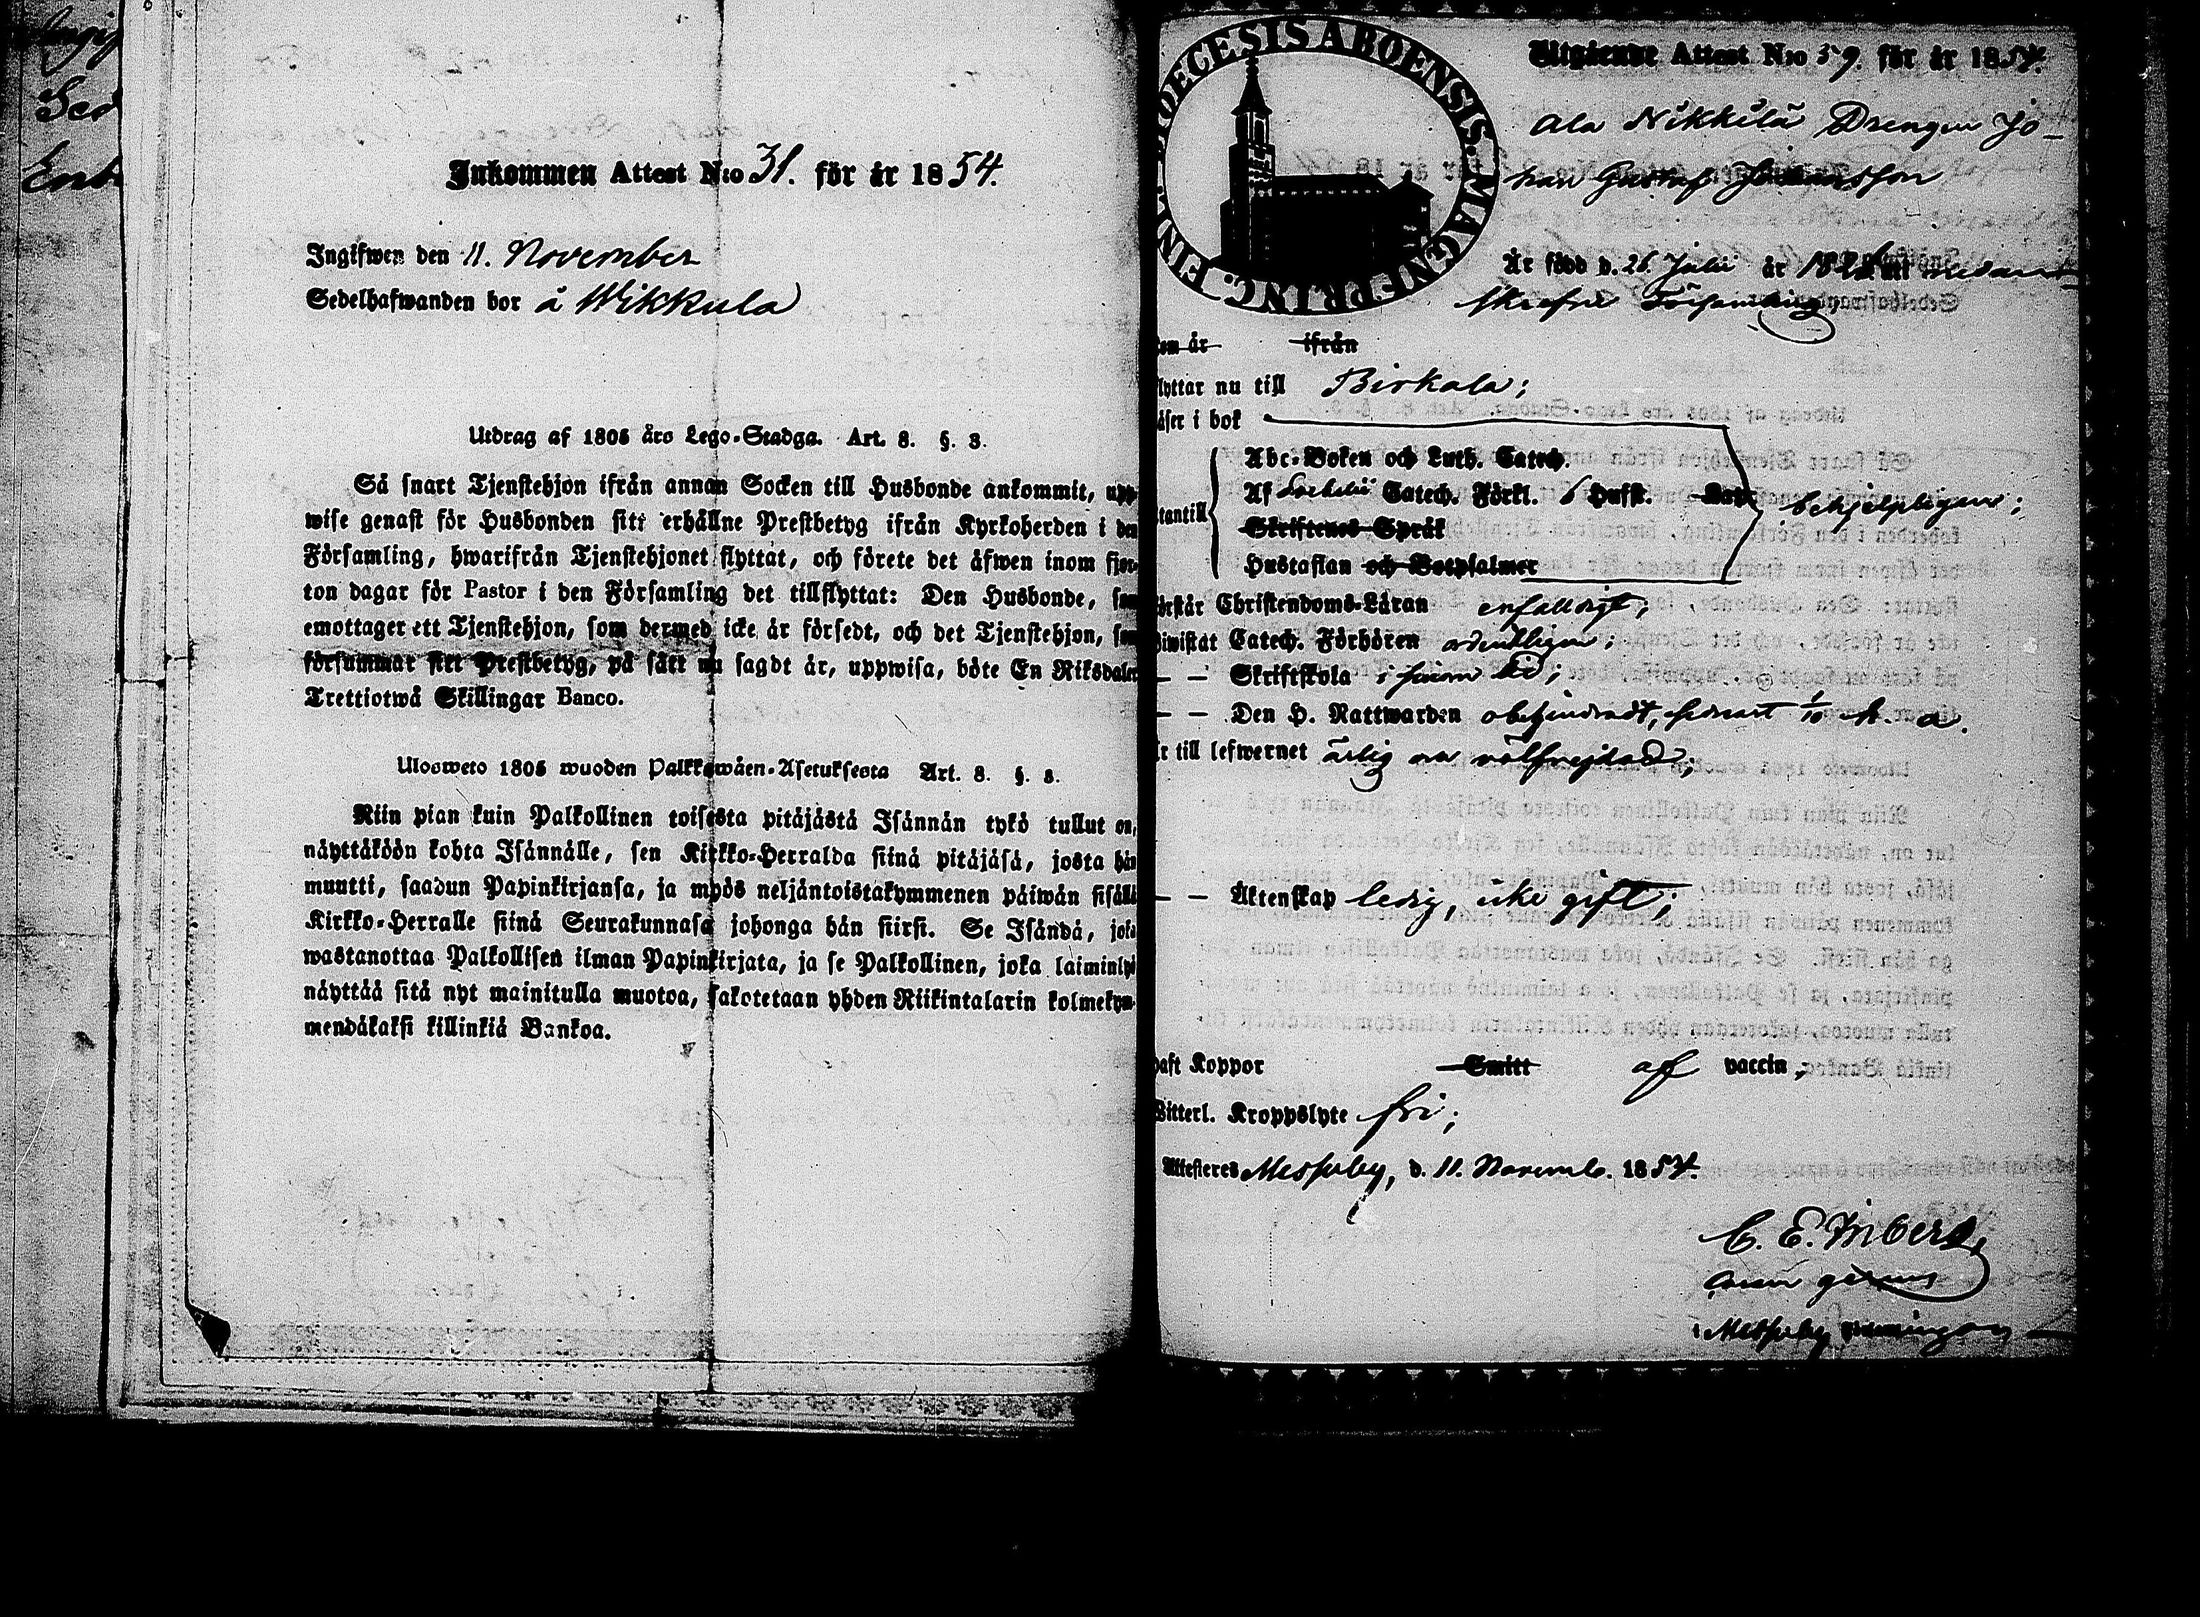 Inkommen Attest N:o 31. för år 1854.
Ingifwen den 11. November
Sedelhafwanden bor å Wikkula
Utdrag af 1805 års Lego-Stadga. Art. 8. §. 3.
Så snart Tjenstehjon ifrån annan Socken till Husbonde ankommit, upp-
wise genast för Husbonden sitt erhållne Prestbetyg ifrån Kyrkoherden i den
Församling, hwarifrån Tjenstehjonet flyttat, och förete det äfwen inom fjor-
ton dagar för Pastor i den Församling det tillflyttat: Den Husbonde, som
emottager ett Tjenstehjon, som dermed icke är försedt, och det Tjenstehjon, som
försummar sitt Prestbetyg, på sätt nu sagdt är, uppwisa, böte En Riksdaler
Trettiotwå Skillingar Banco.
Ulosweto 1805 wuoden Palkkawäen-Asetuksesta Art. 8. §. 3.
Niin pian kuin Palkollinen toisesta pitäjästä Isännän tykö tullut on,
näyttäköön kohta Isännälle, sen Kirkko-Herralda siinä pitäjäsä, josta hän
muutti, saadun Papinkirjansa, ja myös neljäntoistakymmenen päiwän sisällä
Kirkko-Herralle siinä Seurakunnasa johonga hän siirsi. Se Isändä, joka
wastanottaa Palkollisen ilman Papinkirjata, ja se Palkollinen, joka laiminlyö
näyttää sitä nyt mainitulla muotoa, sakotetaan yhden Riikintalarin kolmekym-
mendäkaksi killinkiä Bankoa.
DIOECESIS ABOENSIS. MAGN. PRINC. FINL.
Utgående Attest N:o 59. för år 1854.
Ala Nikkilä Drengen Jo-
han Gustaf Johansson
Är född d. 26. Julii år 18
Församling
som är ifrån
flyttar nu till Birkala;
läser i bok
utantill
Abc-Boken och Luth. Catech.
Af Catech. Förkl. 6 Hufst.
Skriftenes Språk
Hustaflan och Botpsalmer
behjelpligen;
förstår Christendoms-Läran enfaldigt;
Biwistat Catech. Förhören ordentligen;
— — Skriftskola i sinom tid;
— — Den H. Nattwarden obehindradt, senast 1/10 h. a.
Är till lefwernet ärlig och välfrejdad;
— — Äktenskap ledig, icke gift;
haft Koppor Smitt af vaccin;
Witterl. Kroppslyte fri;
Attesteres Messuby, d. 11. Novemb. 1854.
C. E.
Messuby